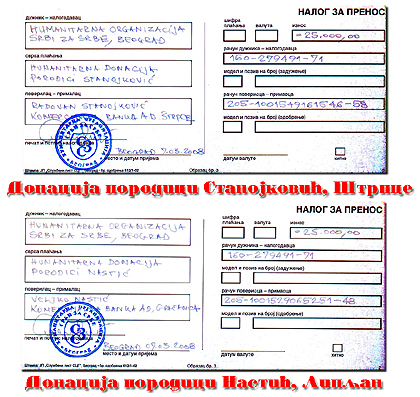 НАЛОГ ЗА ПРЕНОС
дужник – налогодавац
HUMANITARNA ORGANIZACIJA
SRBI ZA SRBE, BEOGRAD
шифра плаћања
валута
износ
=25.000,00
рачун дужника – налогодавца
160-279491-71
HUMANITARNA DONACIJA
PORODICI STANOJKOVIĆ
модел и позив на број (задужење)
поверилац – прималац
рачун повериоца – примаоца
RADOVAN STANOJKOVIĆ
модел и позив на број (одобрење)
печат и потпис налогодавца
BEOGRAD
место и датум пријема
датум валуте
хитно
Образац бр. 3
Донација породици Станојковић, Штрпце
НАЛОГ ЗА ПРЕНОС
дужник – налогодавац
HUMANITARNA ORGANIZACIJA
SRBI ZA SRBE, BEOGRAD
шифра плаћања
валута
износ
=25.000,00
рачун дужника – налогодавца
160-279491-71
HUMANITARNA DONACIJA
PORODICI NASTIĆ
модел и позив на број (задужење)
поверилац – прималац
рачун повериоца – примаоца
VELJKO NASTIĆ
BANKA AD, GRAČANICA
модел и позив на број (одобрење)
печат и потпис налогодавца
BEOGRAD
место и датум пријема
датум валуте
хитно
Образац бр. 3
Донација породици Настић, Липљан